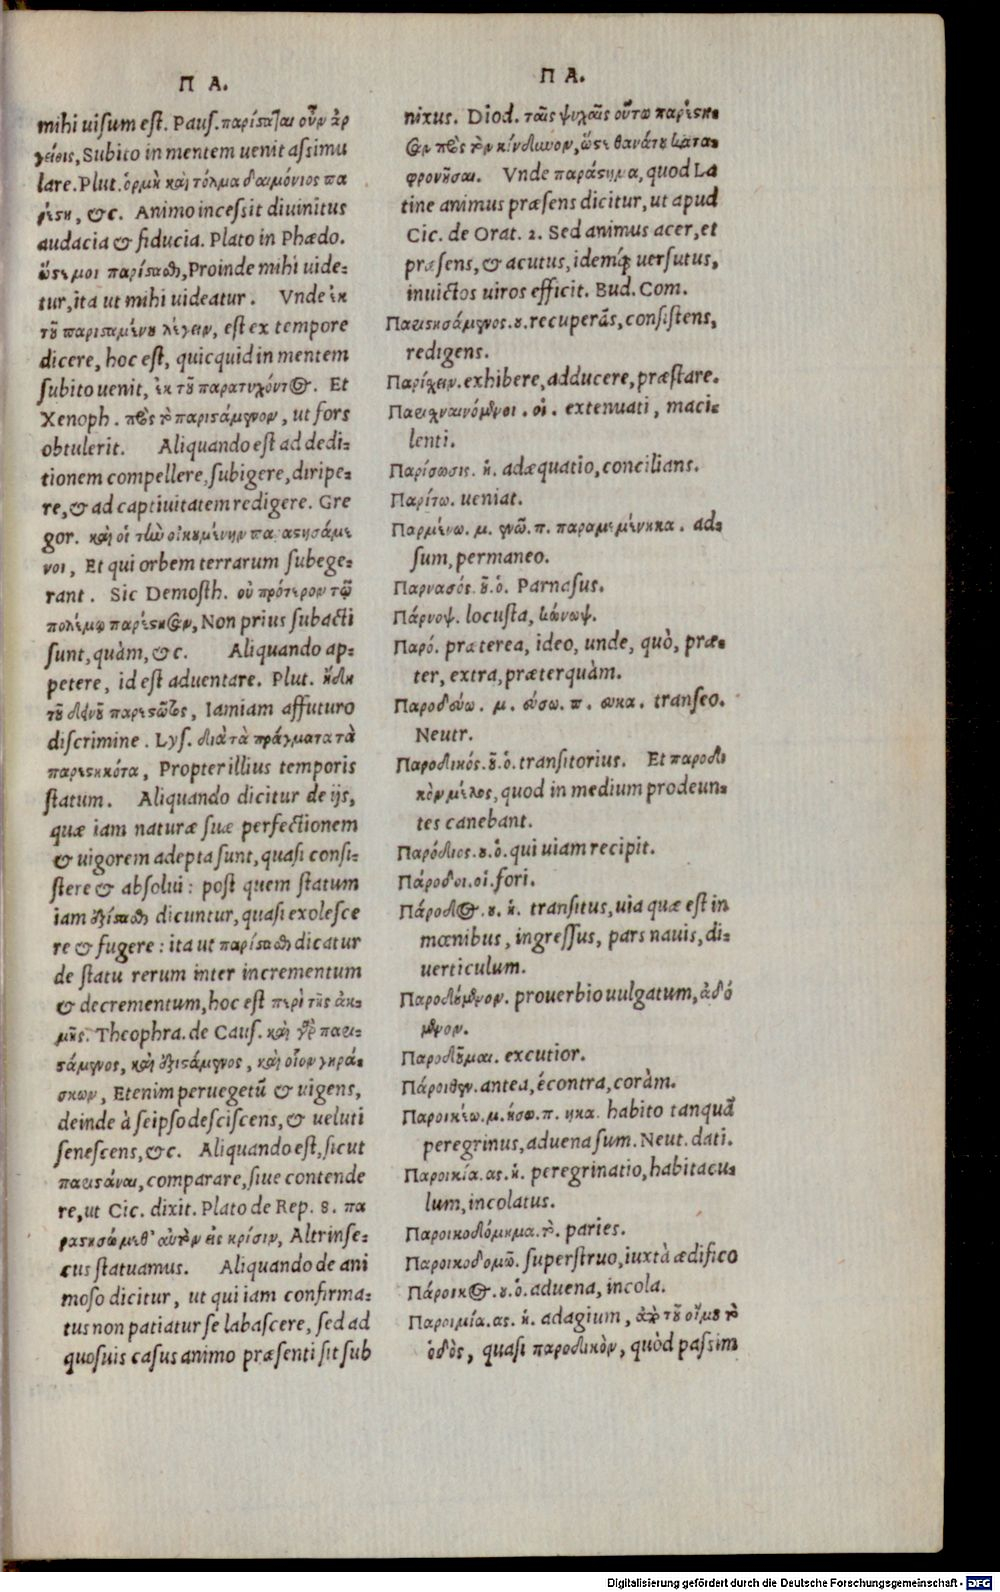 Π Α.
mihi uisum est. Paus. παρίσταται οὖν ἀρ
γείοις, Subito in mentem uenit assimu
lare. Plut. ὁρμὴ καὶ τόλμα δαιμόνιος πα
ρέστη, & c. Animo incessit diuinitus
audacia & fiducia. Plato in Phædo.
ὥστε μοι παρίσταθ, Proinde mihi uide-
tur, ita ut mihi uideatur. Vnde ἐκ
τοῦ παρισταμένου λέγειν, est ex tempore
dicere, hoc est, quicquid in mentem
subito uenit, ἐκ τοῦ παρατυχόντος. Et
Xenoph. πρὸς τὸ παριστάμενον, ut fors
obtulerit. Aliquando est ad dedi-
tionem compellere, subigere, diripe-
re, & ad captiuitatem redigere. Gre
gor. καὶ οἱ τὴν οἰκουμένην παραστησάμε
νοι, Et qui orbem terrarum subege-
rant. Sic Demosth. οὐ πρότερον τῷ
πολέμῳ παρέστησαν, Non prius subacti
sunt, quàm, & c. Aliquando ap-
petere, id est aduentare. Plut. ἤδη
τοῦ δεινοῦ παρεστῶτος, Iamiam affuturo
discrimine. Lys. διὰ τὰ πράγματα τὰ
παρεστηκότα, Propter illius temporis
statum. Aliquando dicitur de ijs,
quæ iam naturæ suæ perfectionem
& uigorem adepta sunt, quasi consi-
stere & absolui: post quem statum
iam ἐξίσταθ dicuntur, quasi exolesce
re & fugere: ita ut παρίσταθ dicatur
de statu rerum inter incrementum
& decrementum, hoc est περὶ τῆς ἀκ-
μῆς. Theophra. de Caus. καὶ γὰρ παρι-
στάμενος, καὶ ἐξιστάμενος, καὶ οἷον γηρά-
σκων, Etenim peruegetũ & uigens,
deinde à seipso desciscens, & ueluti
senescens, & c. Aliquando est, sicut
παριστάναι, comparare, siue contende
re, ut Cic. dixit. Plato de Rep. 8. πα
ραστησώμεθ' αὐτὸν εἰς κρίσιν, Altrinse-
cus statuamus. Aliquando de ani
moso dicitur, ut qui iam confirma-
tus non patiatur se labascere, sed ad
quosuis casus animo præsenti sit sub
Π Α.
nixus. Diod. ταῖς ψυχαῖς οὕτω παρέστη-
σαν πρὸς τὸν κίνδυνον, ὥστε θανάτου κατα-
φρονῆσαι. Vnde παράστημα, quod La
tine animus præsens dicitur, ut apud
Cic. de Orat. 2. Sed animus acer, et
præsens, & acutus, idemq; uersutus,
inuictos uiros efficit. Bud. Com.
Παριστησάμενος. ου. recuperãs, consistens,
redigens.
Παρίσχειν. exhibere, adducere, præstare.
Παρισχναινόμενοι. οἱ. extenuati, maci-
lenti.
Παρίσωσις. ἡ. adæquatio, concilians.
Παρίτω. ueniat.
Παρμένω. μ. ενῶ. π. παραμεμένηκα. ad-
sum, permaneo.
Παρνασός. οῦ. ὁ. Parnasus.
Πάρνοψ. locusta, κώνωψ.
Παρό. præterea, ideo, unde, quò, præ-
ter, extra, præterquàm.
Παροδεύω. μ. εύσω. π. ευκα. transeo.
Neutr.
Παροδικός. οῦ. ὁ. transitorius. Et παροδι
κὸν μέλος, quod in medium prodeun-
tes canebant.
Παρόδιος. ου. ὁ. qui uiam recipit.
Πάροδοι. οἱ. fori.
Πάροδος. ου. ἡ. transitus, uia quæ est in
mœnibus, ingressus, pars nauis, di-
uerticulum.
Παροδούμενον. prouerbio uulgatum, ἀδό
μενον.
Παροδοῦμαι. excutior.
Πάροιθεν. antea, écontra, coràm.
Παροικέω. μ. ήσω. π. ηκα. habito tanquã
peregrinus, aduena sum. Neut. dati.
Παροικία. ας. ἡ. peregrinatio, habitacu-
lum, incolatus.
Παροικοδόμημα. τὸ. paries.
Παροικοδομῶ. superstruo, iuxtà ædifico
Πάροικος. ου. ὁ. aduena, incola.
Παροιμία. ας. ἡ. adagium, ἀπὸ τοῦ οἴμου τὸ
ὁδὸς, quasi παροδικὸν, quòd passim
Digitalisierung gefördert durch die Deutsche Forschungsgemeinschaft - DFG